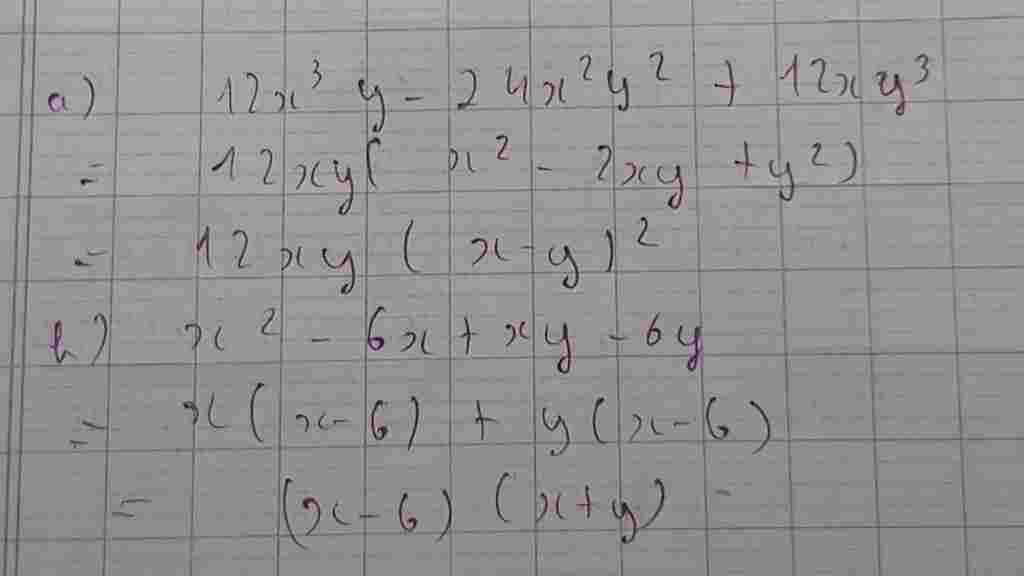 a) 12x³y - 24x²y² + 12xy³
= 12xy( x² - 2xy + y²)
= 12xy ( x - y )²
b) x² - 6x + xy - 6y
= x( x - 6) + y( x - 6)
= (x - 6) (x + y)